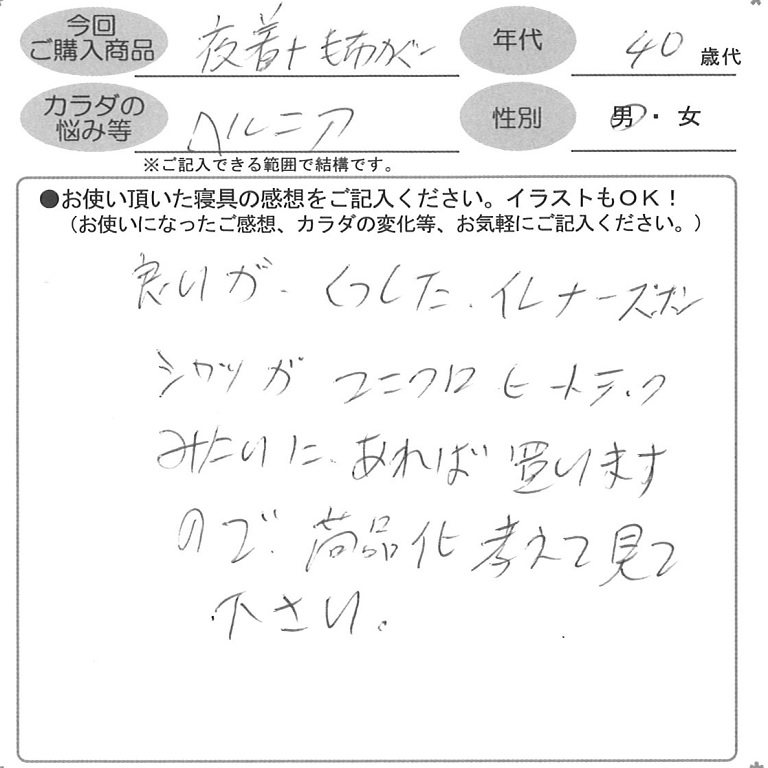 今回
ご購入商品
夜着+毛布カバー
年代
40 歳代
カラダの
悩み等
ヘルニア
性別
男・女
※ご記入できる範囲で結構です。
●お使い頂いた寝具の感想をご記入ください。イラストもOK!
(お使いになったご感想、カラダの変化等、お気軽にご記入ください。)
良いが、くつした、インナーズボン
シャツが ユニクロ ヒートテック
みたいに、あれば 買います
ので、商品化 考えて見て
下さい。